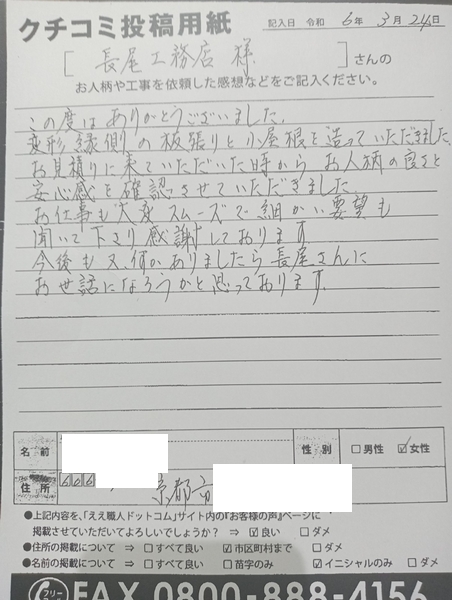 クチコミ投稿用紙
記入日 令和 6年 3月 24日
[ 長尾工務店 様 ]さんの
お人柄や工事を依頼した感想などをご記入ください。
この度はありがとうございました。
変形縁側の板張りと小屋根を造っていただきました。
お見積りに来ていただいた時からお人柄の良さと
安心感を確認させていただきました。
お仕事も大変スムーズで細かい要望も
聞いて下さり感謝しております。
今後も又、何かありましたら長尾さんに
お世話になろうかと思っております。
名前
性別 □男性 ☑女性
住所 606 京都市
●上記内容を、「ええ職人ドットコム」サイト内の『お客様の声』ページに
掲載させていただいてよろしいでしょうか? ⇒ ☑良い □ダメ
●住所の掲載について ⇒ □すべて良い ☑市区町村まで □ダメ
●名前の掲載について ⇒ □すべて良い □苗字のみ ☑イニシャルのみ □ダメ
フリー
FAX 0800-888-4156